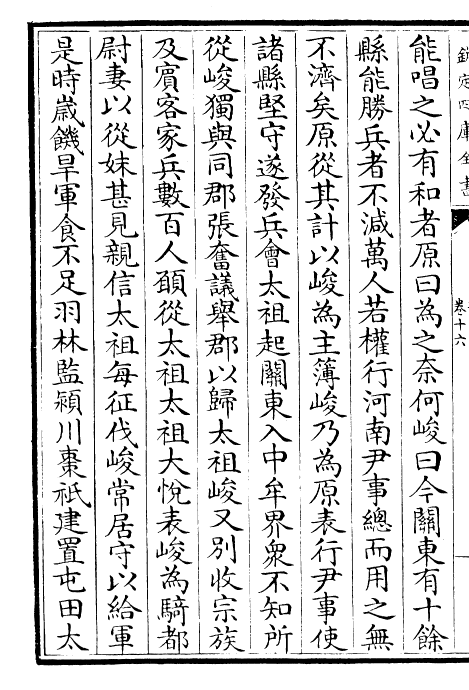 欽定四庫全書
卷十六
能唱之必有和者原曰為之奈何峻曰今關東有十餘
縣能勝兵者不減萬人若權行河南尹事總而用之無
不濟矣原從其計以峻為主簿峻乃為原表行尹事使
諸縣堅守遂發兵會太祖起關東入中牟界衆不知所
從峻獨與同郡張奮議舉郡以歸太祖峻又別收宗族
及賓客家兵數百人願從太祖太祖大悅表峻為騎都
尉妻以從妹甚見親信太祖每征伐峻常居守以給軍
是時歲饑旱軍食不足羽林監潁川棗祇建置屯田太